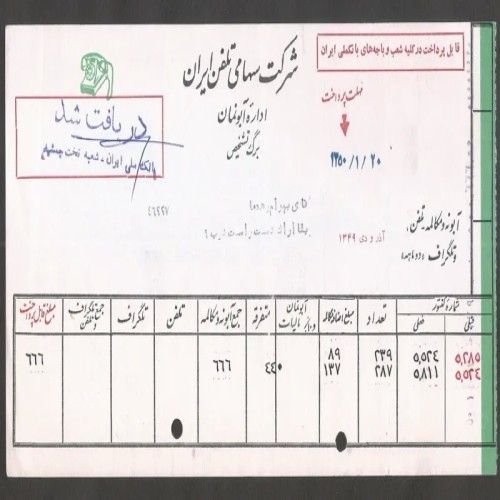 قابل پرداخت در کلیه شعب و باجه‌های بانک ملی ایران
شرکت سهامی تلفن ایران
اداره آبونمان
برگ تشخیص
مهلت پرداخت
۱۳۵۰/۱/۲۰
دریافت شد
بانک ملی ایران - شعبه تخت جمشید
۴۶۲۲۷
آبونه و مکالمه - تلفن،
و تلگراف (دو ماهه)
آذر و دی ۱۳۴۹
شماره کنتور
قبلی
فعلی
تعداد
مبلغ اضافه مکالمه
آبونمان
متفرقه
جمع آبونه و مکالمه
تلفن
تلگراف
جمع تلگراف و تلفن
مبلغ قابل پرداخت
۵,۲۸۵ ۵,۵۲۴ ۲۳۹ ۸۹ ۴۴۰ ۶۶۶ ۶۶۶
۵,۵۲۴ ۵,۸۱۱ ۲۸۷ ۱۳۷